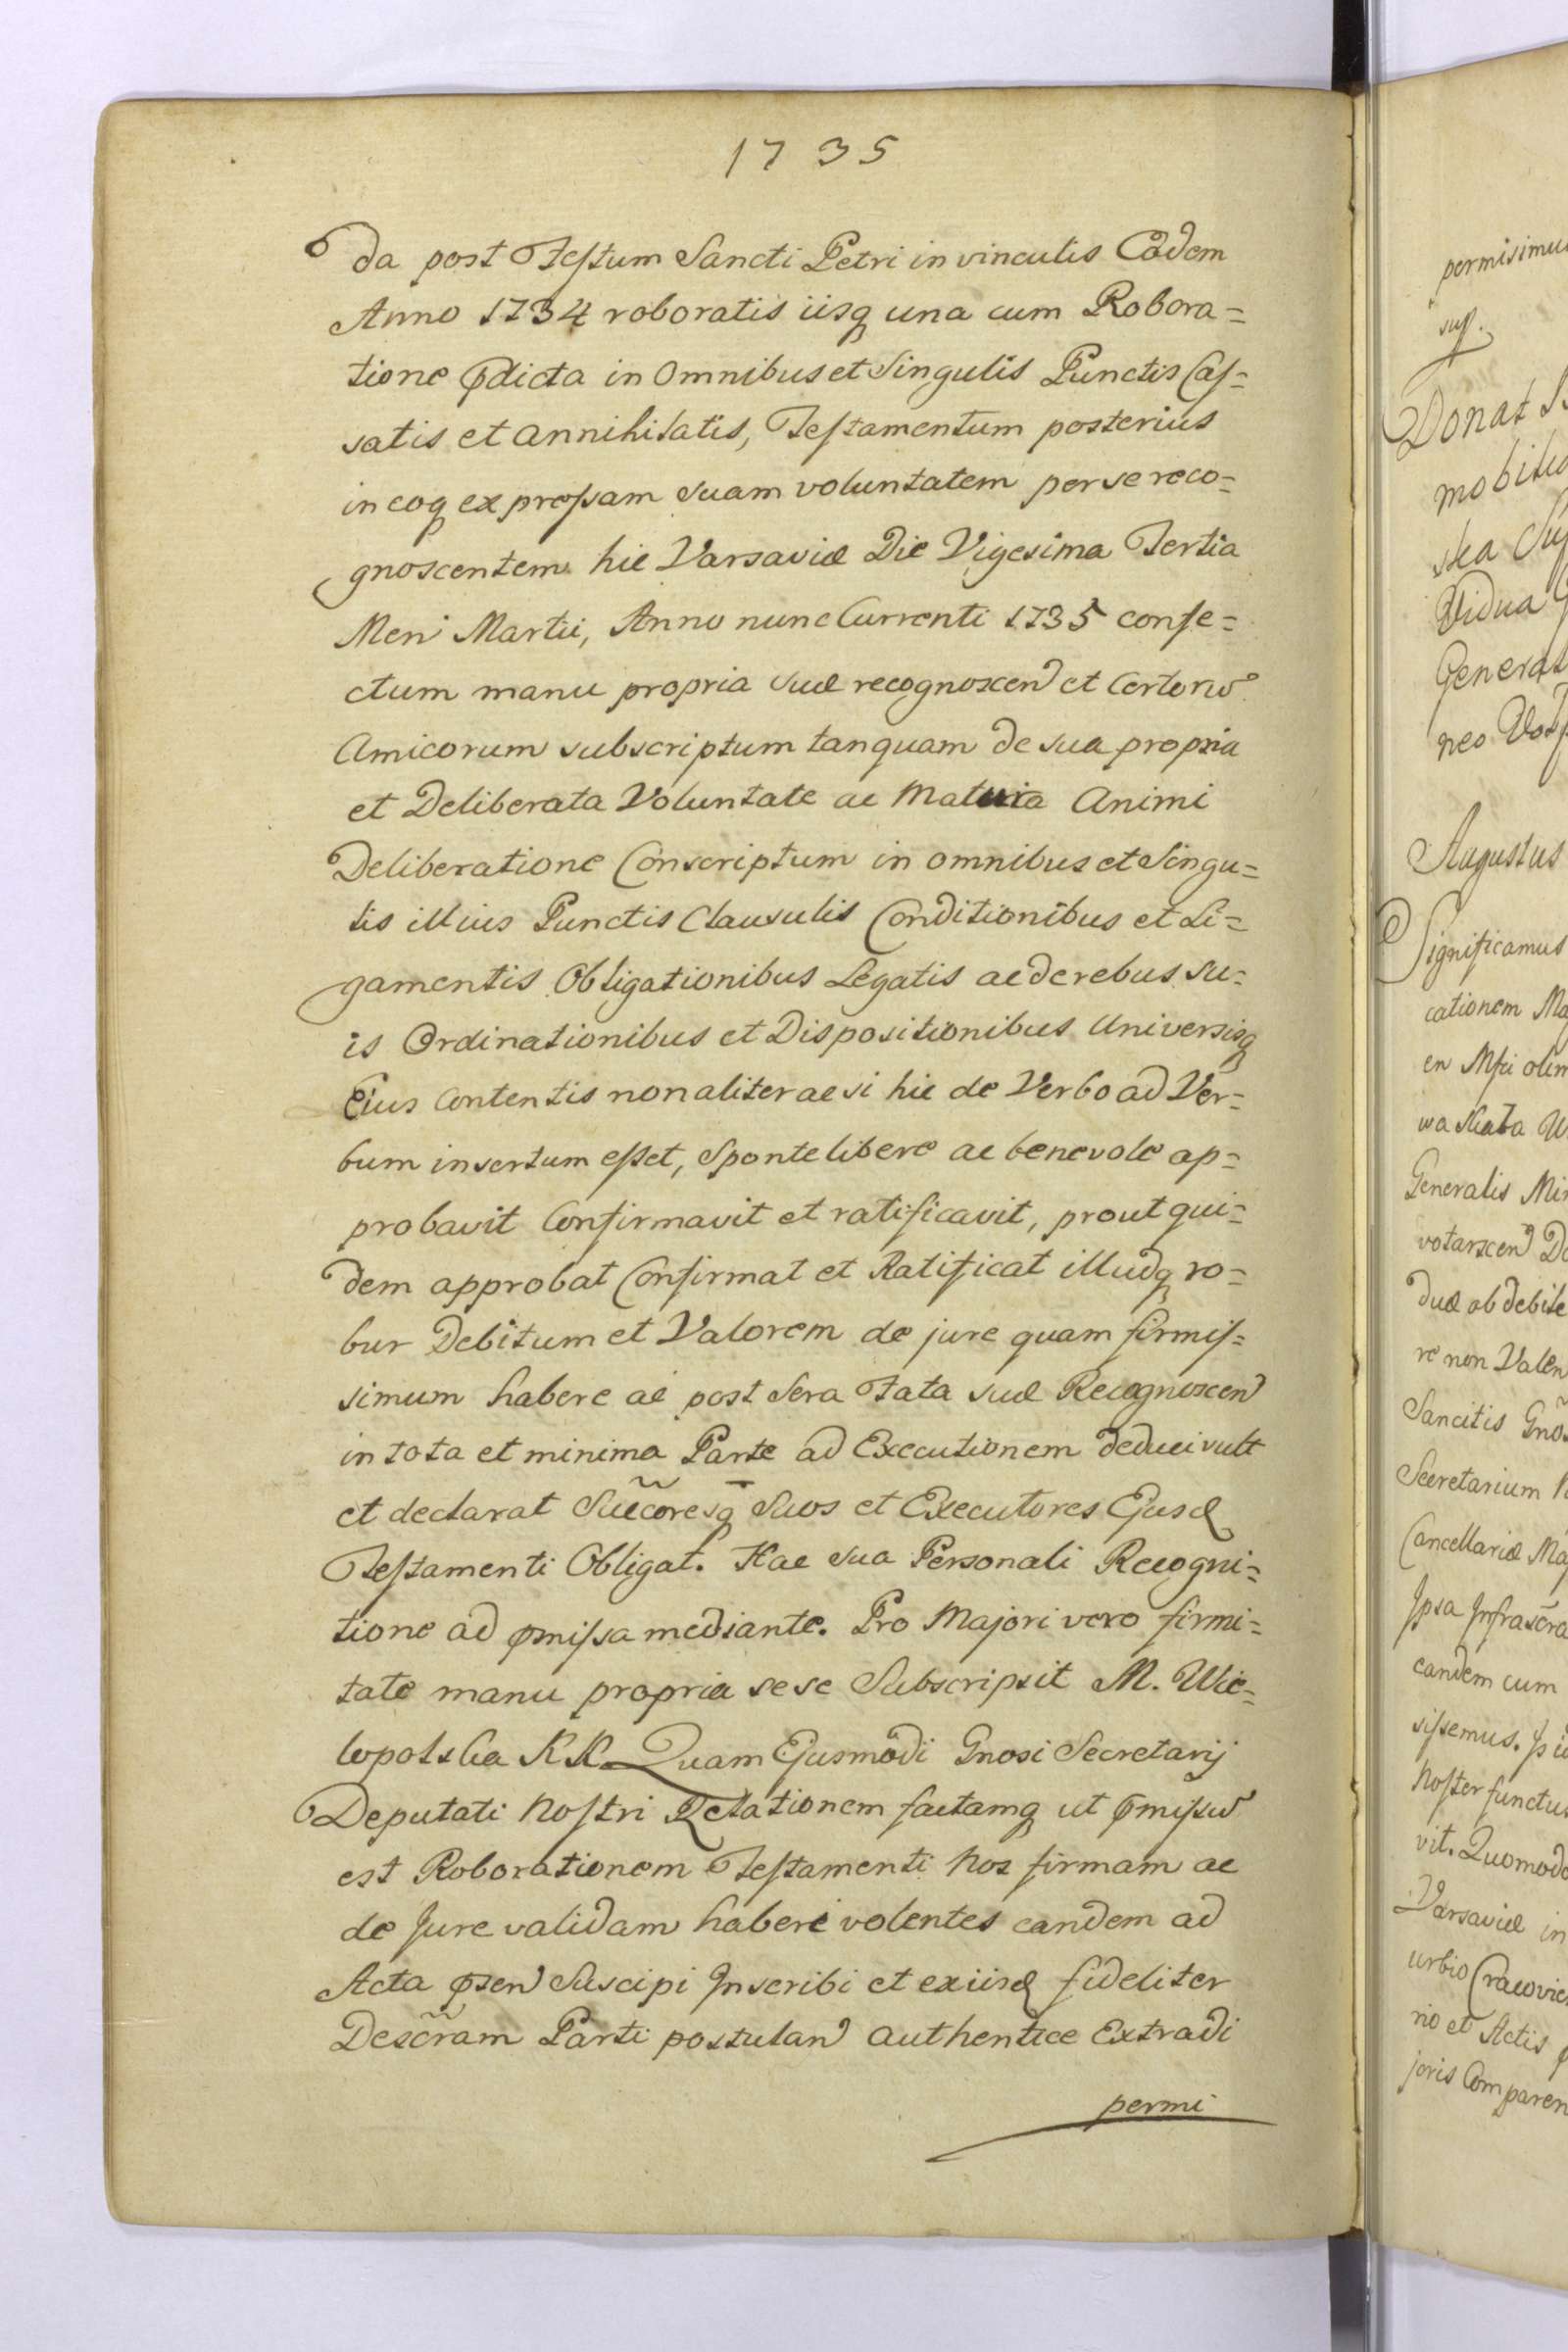 1735
da post Festum Sancti Petri in vinculis Eodem
Anno 1734 roboratis iisq una cum Robora=
tione pdicta in Omnibus et Singulis Punctis Cas=
satis et annihilatis, Testamentum posterius
in eoq expressam suam voluntatem per se reco=
gnoscentem hic Varsaviæ Die Vigesima Tertia
Men Martii, Anno nunc Currenti 1735 confe=
ctum manu propria suæ recognoscen et Certorũ
Amicorum subscriptum tanquam de sua propria
et Deliberata Voluntate ac Matura Animi
Deliberatione Conscriptum in omnibus et Singu=
lis illius Punctis Clausulis Conditionibus et Li=
gamentis Obligationibus Legatis ac de rebus su=
is Ordinationibus et Dispositionibus Universisq
Ejus Contentis non aliter ac si hic de Verbo ad Ver=
bum insertum esset, Sponte libere ac benevole ap=
probavit Confirmavit et ratificavit, prout qui=
dem approbat Confirmat et Ratificat illudq ro=
bur Debitum et Valorem de jure quam firmis=
simum habere ac post Sera Fata suæ Recognoscen
in tota et minima Parte ad Executionem deduci vult
et declarat Succoresq Suos et Executores Ejusd
Testamenti Obligat. Hac sua Personali Recogni=
tione ad pmissa mediante. Pro Majori vero firmi=
tate manu propria sese Subscripsit M. Wie=
lopolska KK Quam Ejusmodi Gnosi Secretarij
Deputati Nostri Relationem factamq ut pmissũ
est Roborationem Testamenti Nos firmam ac
de Jure validam haberi volentes eandem ad
Acta psen Suscipi Inscribi et ex iisd fideliter
Descram Parti postulan authentice Extradi
permi
permisimus
Donat
mobilu
ska
Vidua
General
neo
Augustus
Significamus
cationem Ma
en olim
wa
Generalis
duæ ob debite
re non Valen
Sancitis Gno
Secretarium
Cancellariæ Maj
Ipsa Infrascra
eandem cum
sissemus.
Noster functus
vit. Quomodo
Varsaviæ in
Cracovie
rio et Actis
joris Comparen